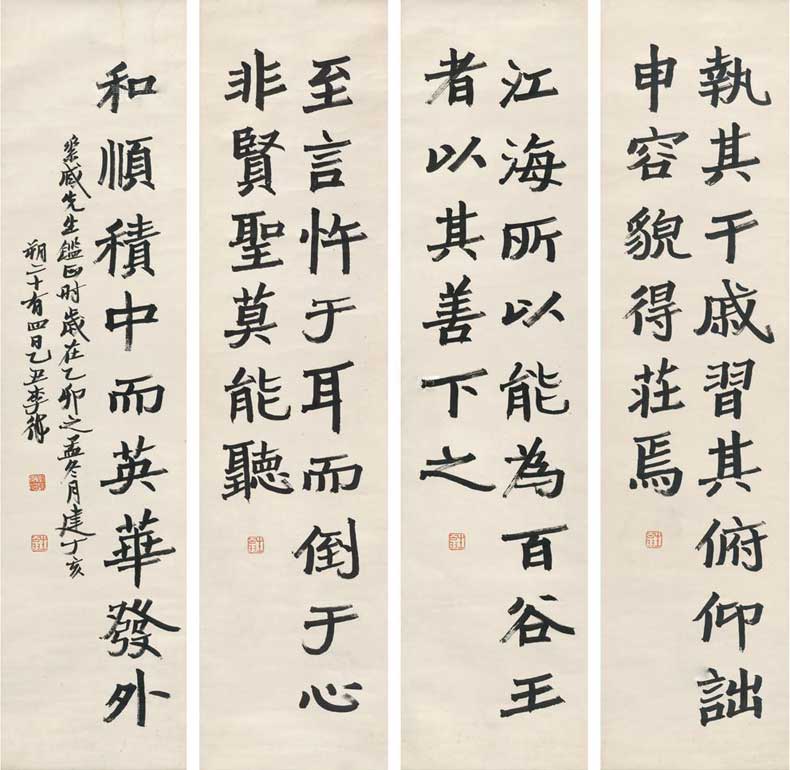 執其干戚習其俯仰詘
申容貌得莊焉
江海所以能為百谷王
者以其善下之
至言忤于耳而倒于心
非賢聖莫能聽
和順積中而英華發外
先生鑑正时歲在乙卯之孟冬月建丁亥
朔二十有四日乙丑李